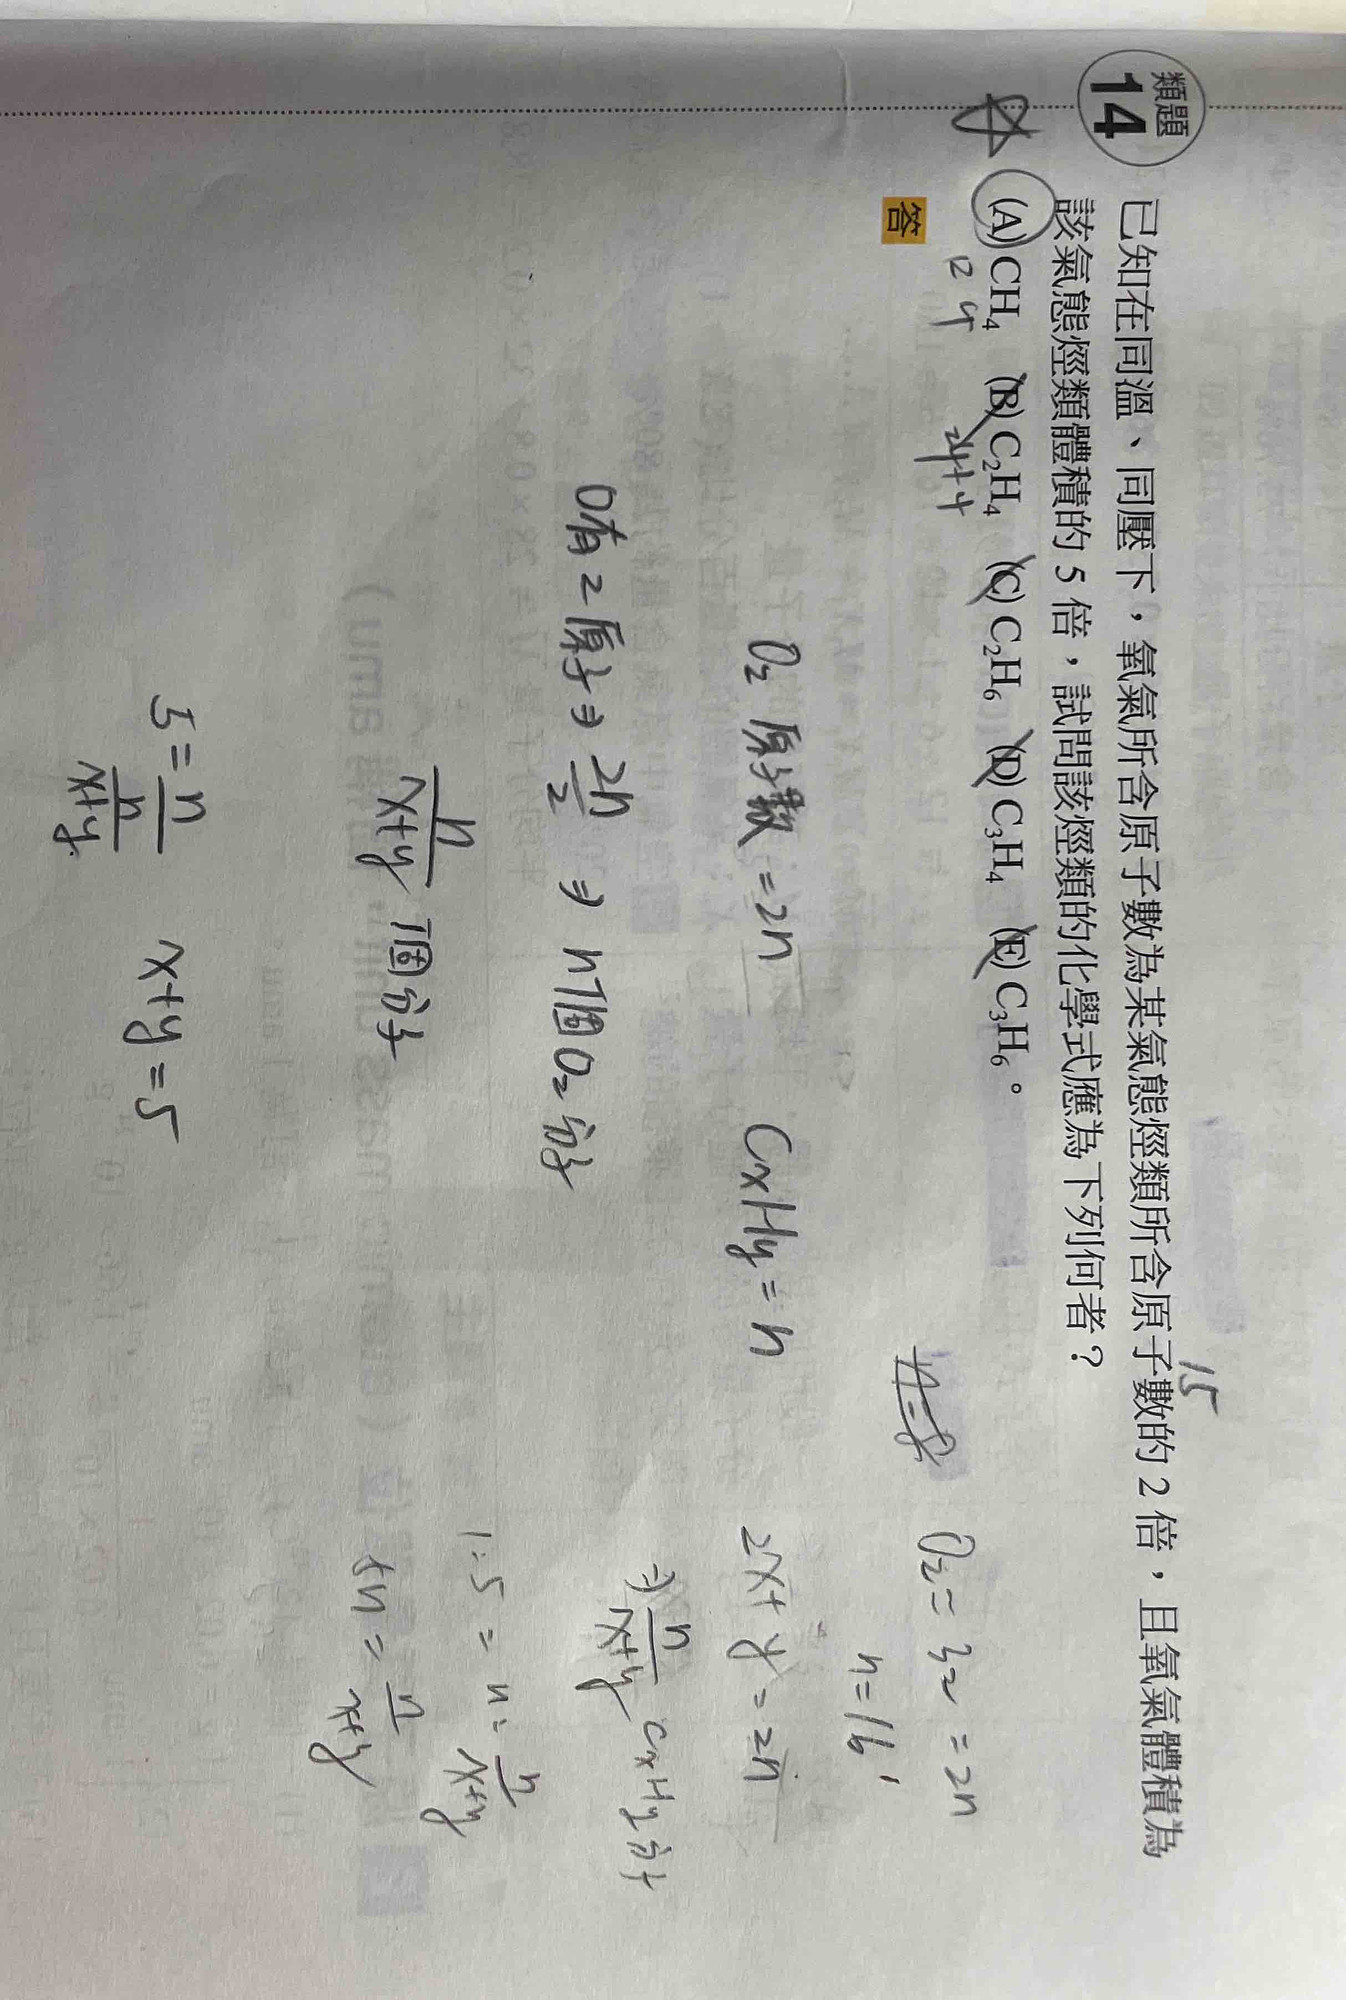 類題
14
已知在同溫、同壓下，氧氣所含原子數為某氣態烴類所含原子數的 2 倍，且氧氣體積為
該氣態烴類體積的 5 倍，試問該烴類的化學式應為下列何者？
(A) CH₄ (B) C₂H₄ (C) C₂H₆ (D) C₃H₄ (E) C₃H₆。
答
15
12 4
24+4
O₂ = 32 = 2n
n=16
O₂ 原子數 = 2n
CxHy = n
2x+y = 2n
O有 2 原子 ⇒ 2n/2 ⇒ n個O₂分子
⇒ n/x+y CxHy 分子
n/x+y 個分子
1:5 = n : n/x+y
5n = n/x+y
5 = n/n/x+y
x+y = 5